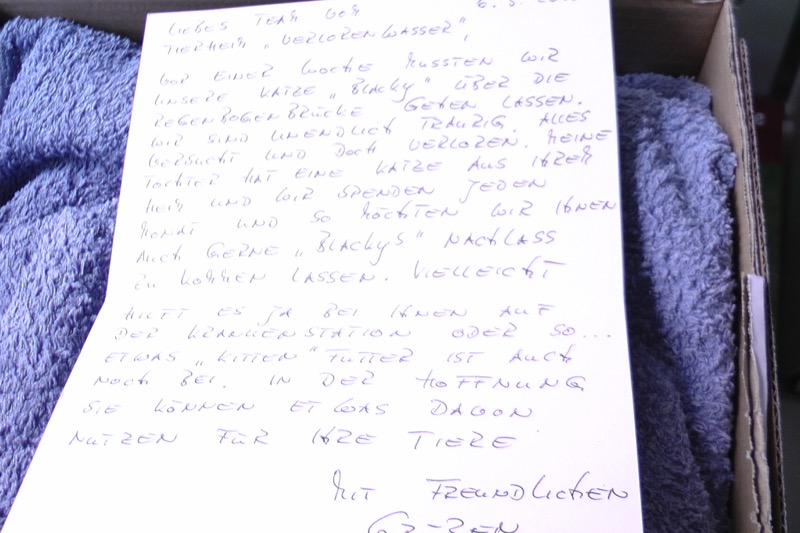 LIEBES TEAM VOM
TIERHEIM „VERLORENWASSER",
VOR EINER WOCHE MUSSTEN WIR
UNSERE KATZE „BLACKY" ÜBER DIE
REGENBOGENBRÜCKE GEHEN LASSEN.
WIR SIND UNENDLICH TRAURIG. ALLES
VERSUCHT UND DOCH VERLOREN. MEINE
TOCHTER HAT EINE KATZE AUS IHREM
HEIM UND WIR SPENDEN JEDEN
MONAT UND SO MÖCHTEN WIR IHNEN
AUCH GERNE „BLACKYS" NACHLASS
ZU KOMMEN LASSEN. VIELLEICHT
HILFT ES JA BEI IHNEN AUF
DER KRANKENSTATION ODER SO...
ETWAS „KITTEN" FUTTER IST AUCH
NOCH BEI. IN DER HOFFNUNG
SIE KÖNNEN ETWAS DAVON
NUTZEN FÜR IHRE TIERE
MIT FREUNDLICHEN